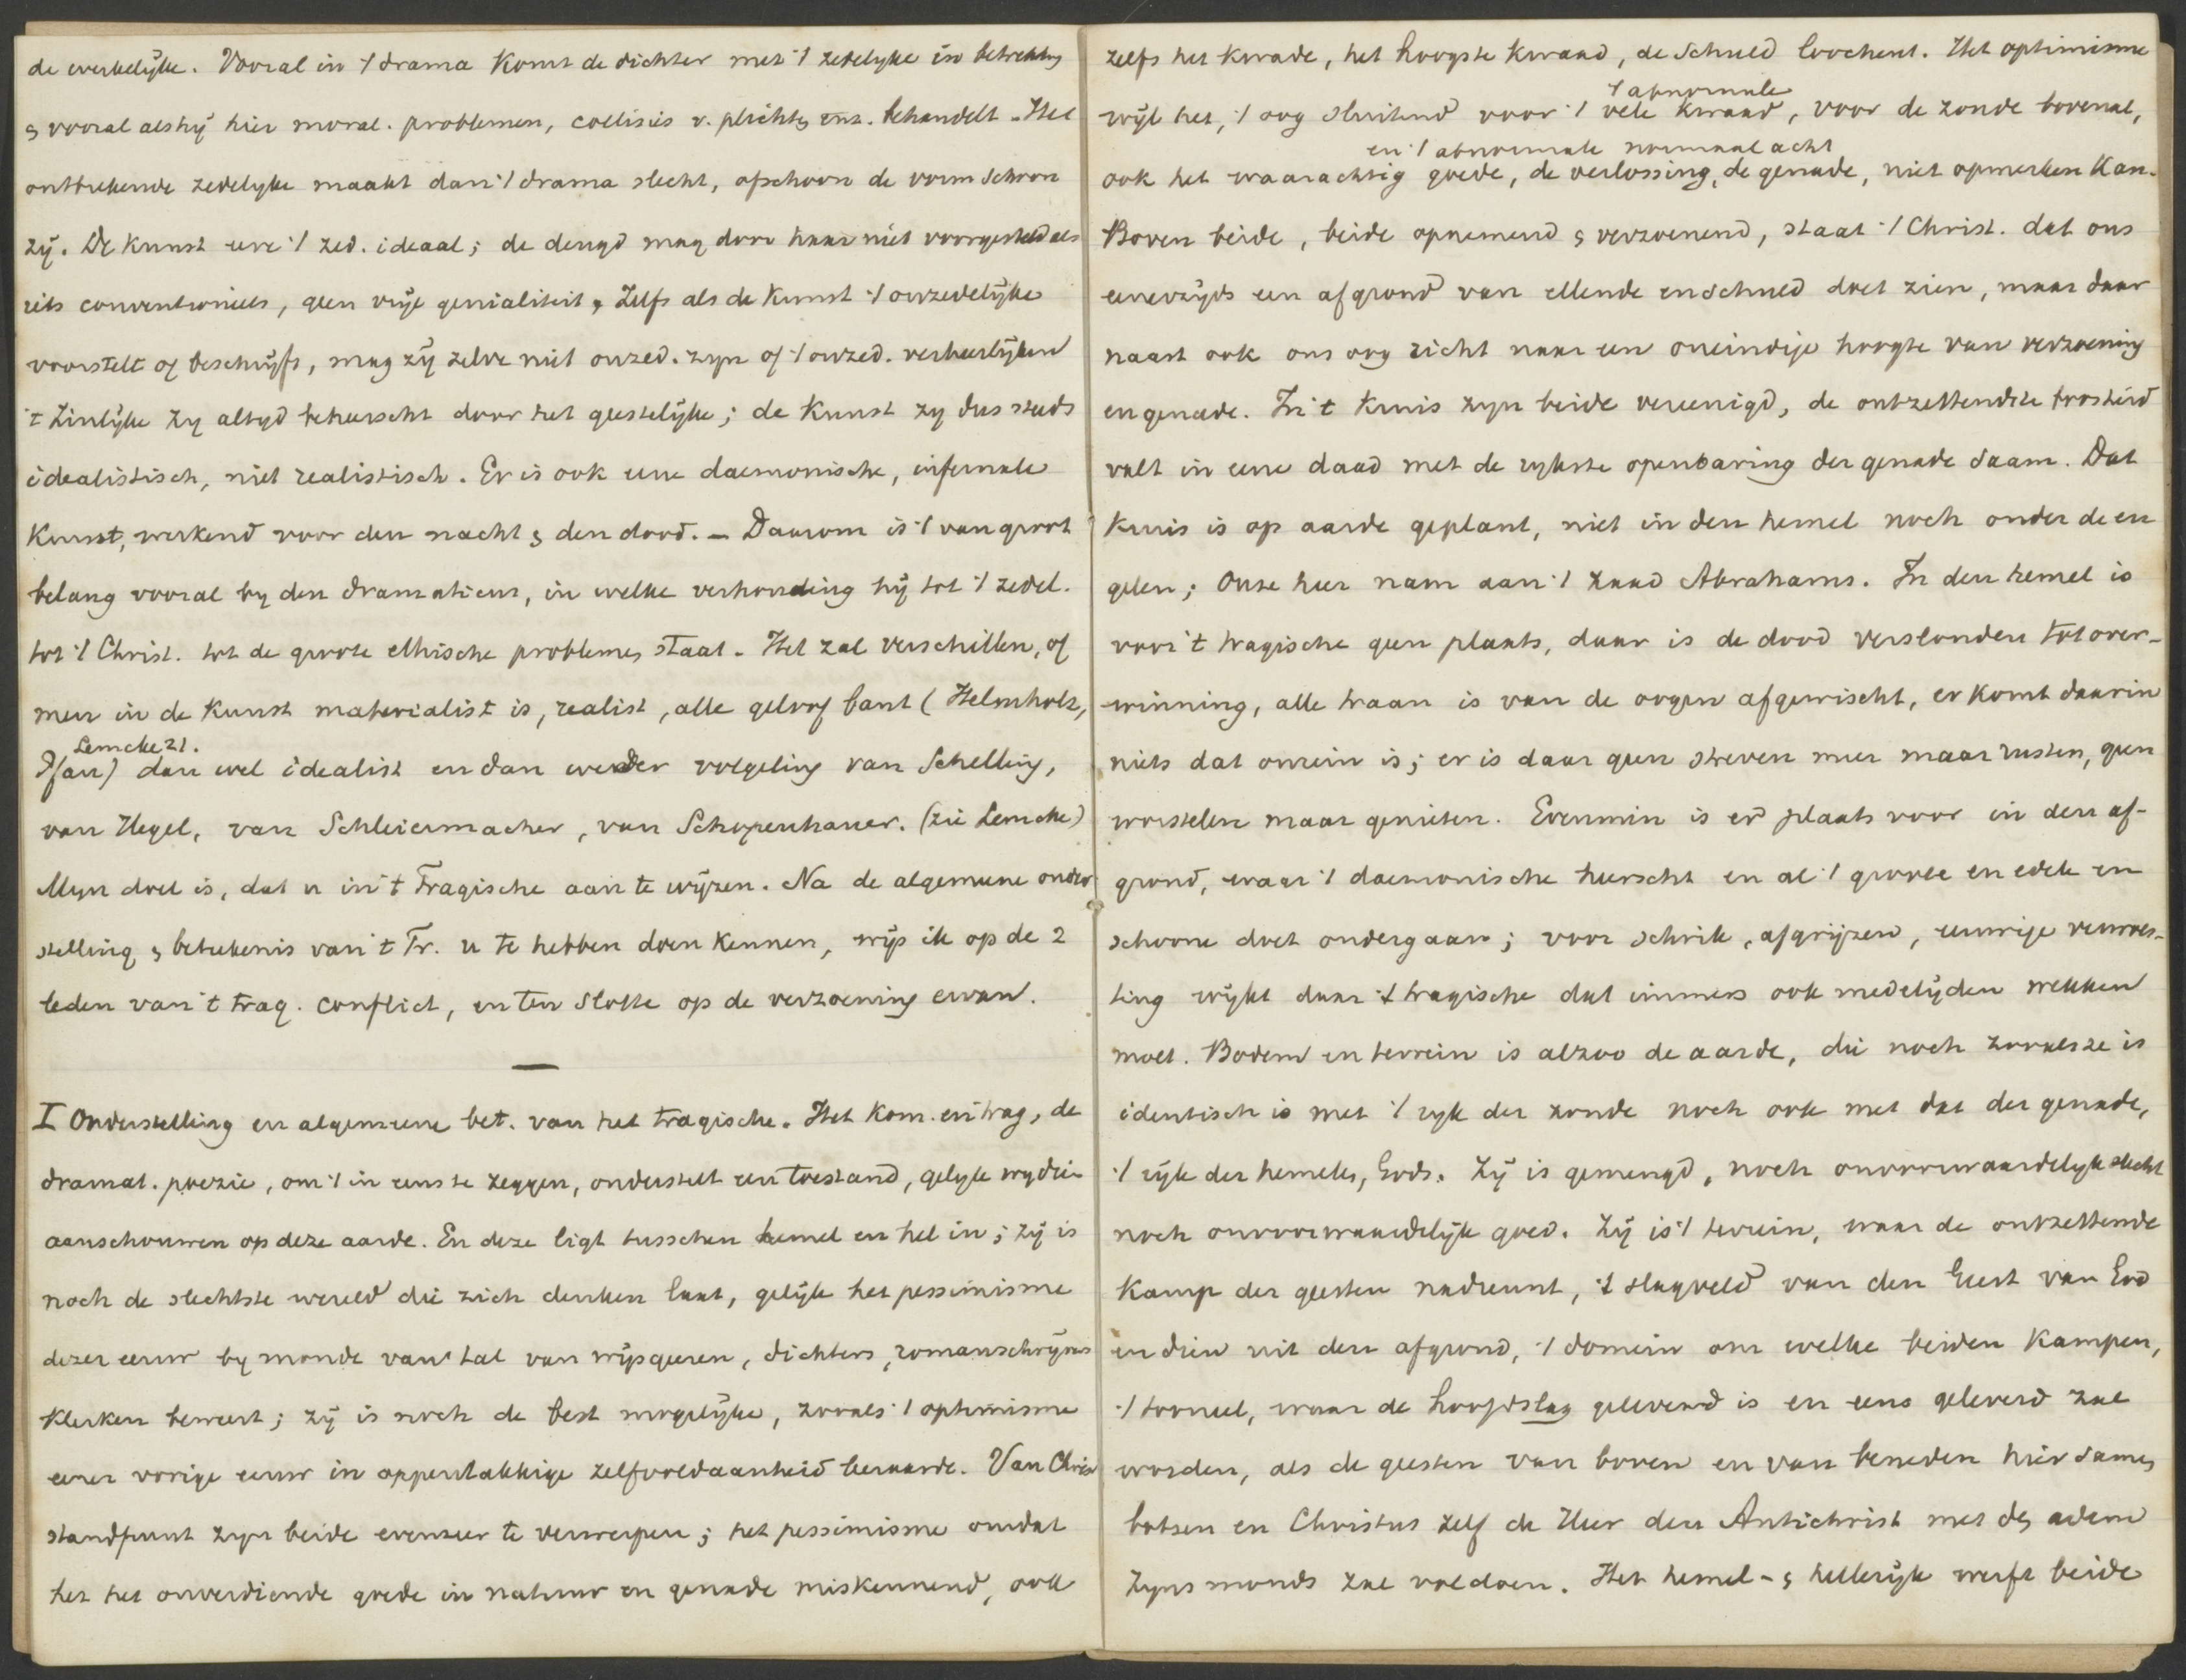 de werkelijke. Vooral in 't drama komt de dichter met 't zedelyke in betrekking
& vooral als hij hier moral. problemen, collisies v. plichten enz. behandelt. Het
ontbrekende zedelyke maakt dan 't drama slecht, ofschoon de vorm schoon
zij. De kunst eere 't zed. ideaal; de deugd mag door haar niet voorgesteld als
iets conventioneels, geen vrije genialiteit, Zelfs als de Kunst 't onzedelijke
voorstelt of beschrijft, mag zij zelve niet onzed. zyn of 't onzed. verheerlijken
't Zinlijke Zy altyd beheerscht door het geestelijke; de Kunst zy dus steeds
idealistisch, niet realistisch. Er is ook eene daemonische, infernale
Kunst, werkend voor den nacht & den dood. – Daarom is 't van groot
belang vooral by den dramaticus, in welke verhouding hij tot 't zedel.
tot 't Christ. tot de groote ethische problemen staat. Het zal verschillen, of
men in de Kunst materialist is, realist, alle geloof bant (Helmholz,
Lemcke 21.
Pfau) dan wel idealist en dan weder volgeling van Schelling,
van Hegel, van Schleiermacher, van Schopenhauer. (zie Lemcke)
Myn doel is, dat u in 't Tragische aan te wijzen. Na de algemeene onder
stelling & beteekenis van 't Tr. u te hebben doen Kennen, wijs ik op de 2
leden van 't trag. conflict, en ten Slotte op de verzoening ervan.
—
I Onderstelling en algemeene bet. van het tragische. Het Kom. en trag, de
dramat. poezie, om 't in eens te zeggen, onderstelt een toestand, gelyk wy dien
aanschouwen op deze aarde. En deze ligt tusschen hemel en hel in; zij is
noch de slechtste wereld die zich denken laat, gelijk het pessimisme
dezer eeuw by monde van 'tal van wijsgeeren, dichters, romanschrijvers
klerken beweert; zij is noch de best mogelijke, zooals 't optimisme
eener vorige eeuw in oppervlakkige zelfvoldaanheid beaarde. Van Chris
standpunt zyn beide evenzeer te verwerpen; het pessimisme omdat
het het onverdiende goede in natuur en genade miskennend, ook
zelfs het kwade, het hoogste kwaad, de Schuld loochent. Het optimisme
't abnormale
wijl het, 't oog sluitend voor 't vele kwaad, voor de zonde bovenal,
en 't abnormale normaal acht
ook het waarachtig goede, de verlossing, de genade, niet opmerken Kan.
Boven beide, beide opnemend & verzoenend, staat 't Christ. dat ons
eenerzijds een afgrond van ellende en schuld doet zien, maar daar
naast ook ons oog richt naar een oneindige hoogte van verzoening
en genade. In 't Kruis zyn beide vereenigd, de ontzettendste troosteid
valt in eene daad met de rykste openbaring der genade saam. Dat
Kruis is op aarde geplant, niet in den hemel noch onder de en
gelen; Onze heer nam aan 't zaad Abrahams. In den hemel is
voor 't tragische geen plaats, daar is de dood verslonden tot over-
winning, alle traan is van de oogen afgewischt, er Komt daarin
niets dat onrein is; er is daar geen streven meer maar rusten, geen
worstelen maar genieten. Evenmin is er plaats voor in den af-
grond, waar 't daemonische heerscht en al 't groote en edele en
schoone doet ondergaan; voor schrik, afgrijzen, eeuwige verwoes-
ting wijkt daar 't tragische dat immers ook medelijden wekken
moet. Bodem en terrein is alzoo de aarde, die noch zooals ze is
identisch is met 't ryk der zonde noch ook met dat der genade,
't rijk der hemelen, Gods. Zij is gemengd, noch onvoorwaardelyk slecht
noch onvoorwaardelijk goed. Zij is 't terrein, waar de ontzettende
Kamp der geesten nadreunt, 't slagveld van den Geest van God
en dien uit den afgrond, 't domein om welke beiden Kampen,
't tooneel, waar de hoofdslag geleverd is en eens geleverd zal
worden, als de geesten van boven en van beneden hier samen
botsen en Christus zelf de Heer den Antichrist met den adem
Zyns monds zal voldoen. Het hemel- & hellerijk werft beide